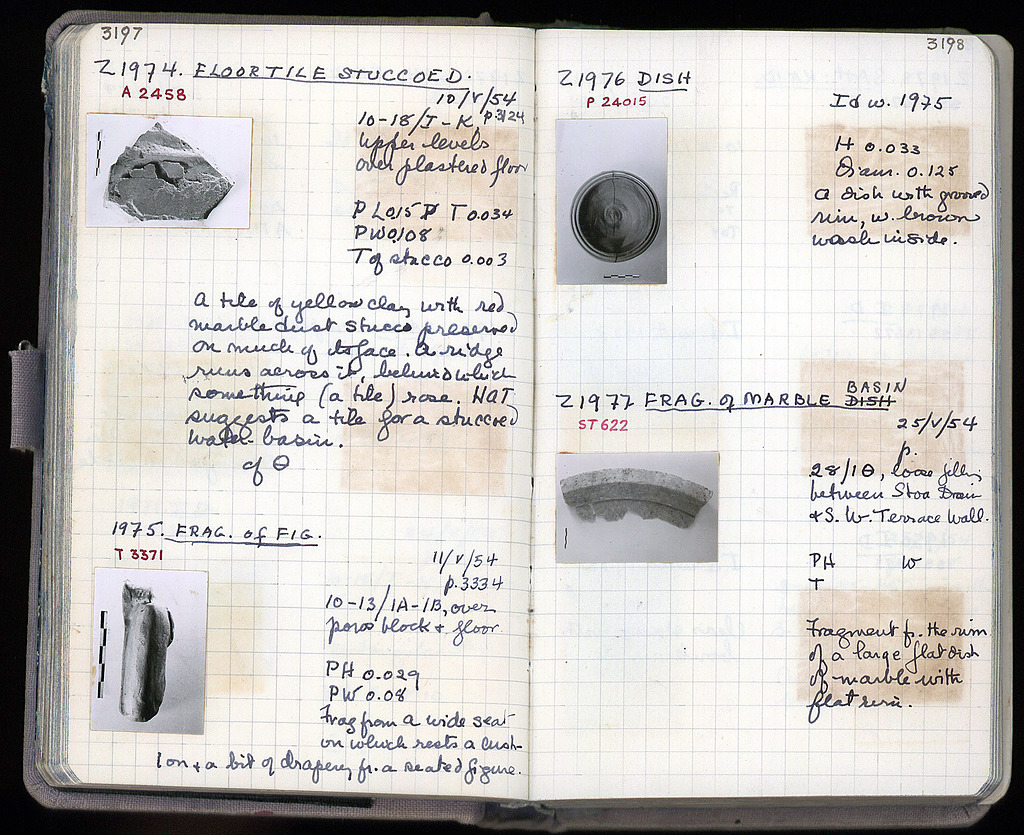 3197
Z1974. FLOORTILE STUCCOED.
A 2458
10/V/54
10-18/I-K, p.3124
Upper levels
over plastered floor
P L 0.15 P T 0.034
PW 0.108
T of stucco 0.003
A tile of yellow clay with red
marble dust stucco preserved
on much of its face. A ridge
runs across it, behind which
something (a tile) rose. HAT
suggests a tile for a stuccoed
water basin.
of Θ
1975. FRAG. of FIG.
T 3371
11/V/54
p.3334
10-13/1A-1B, over
poros block + floor
PH 0.029
PW 0.08
Frag from a wide seat
on which rests a cush-
ion + a bit of drapery fr. a seated figure.
3198
Z1976 DISH
P 24015
Id w. 1975
H 0.033
Diam. 0.125
A dish with grooved
rim, w. brown
wash inside.
Z1977 FRAG. of MARBLE DISH BASIN
ST 622
25/V/54
p.
28/1Θ, loose filling
between Stoa Drain
+ S. W. Terrace Wall.
PH W
T
Fragment fr. the rim
of a large flat dish
of marble with
flat rim.